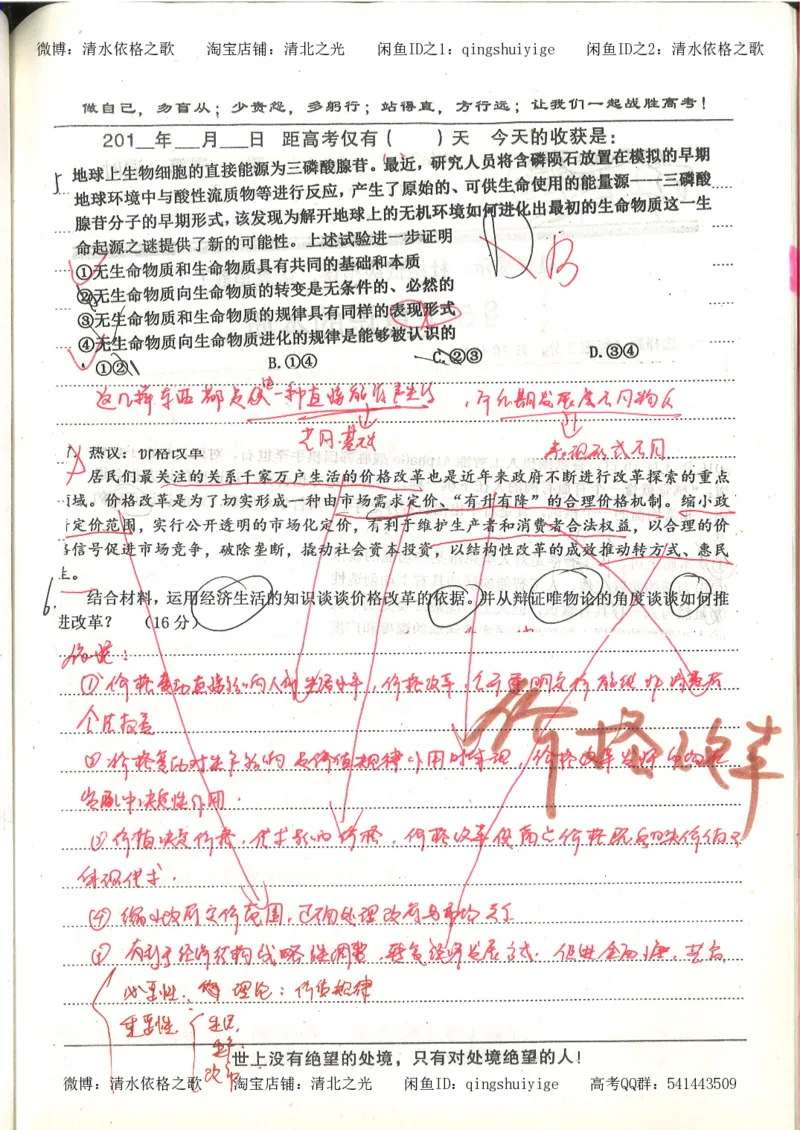 微博：清水依格之歌 淘宝店铺：清北之光 闲鱼ID之1：qingshuiyige 闲鱼ID之2：清水依格之歌
做自己，勿盲从；少责怨，多躬行；站得直，方行远；让我们一起战胜高考！
201__年___月___日 距高考仅有（ ）天 今天的收获是：
5 地球上生物细胞的直接能源为三磷酸腺苷。最近，研究人员将含磷陨石放置在模拟的早期
地球环境中与酸性流质物等进行反应，产生了原始的、可供生命使用的能量源——三磷酸
腺苷分子的早期形式，该发现为解开地球上的无机环境如何进化出最初的生命物质这一生
命起源之谜提供了新的可能性。上述试验进一步证明
①无生命物质和生命物质具有共同的基础和本质
②无生命物质向生命物质的转变是无条件的、必然的
③无生命物质和生命物质的规律具有同样的表现形式
④无生命物质向生命物质进化的规律是能够被认识的
D B
①② B.①④ C.②③ D.③④
共同基础
表现形式不同
热议：价格改革
居民们最关注的关系千家万户生活的价格改革也是近年来政府不断进行改革探索的重点
领域。价格改革是为了切实形成一种由市场需求定价、“有升有降”的合理价格机制。缩小政
府定价范围，实行公开透明的市场化定价，有利于维护生产者和消费者合法权益，以合理的价
格信号促进市场竞争，破除垄断，撬动社会资本投资，以结构性改革的成效推动转方式、惠民
生。
6. 结合材料，运用经济生活的知识谈谈价格改革的依据。并从辩证唯物论的角度谈谈如何推
进改革？ （16分）
①价格变动直接影响人们生活水平，价格改革，
合法权益
价格改革
资源配置中决定性作用．
③价值决定价格．供求影响价格，价格改革使商品价格既反映价值又
体现供求．
④缩小政府定价范围，正确处理政府与市场关系
⑤有利于经济结构战略性调整，转变经济发展方式．
必要性： 理论：价值规律
重要性
世上没有绝望的处境，只有对处境绝望的人！
微博：清水依格之歌 淘宝店铺：清北之光 闲鱼ID：qingshuiyige 高考QQ群：541443509